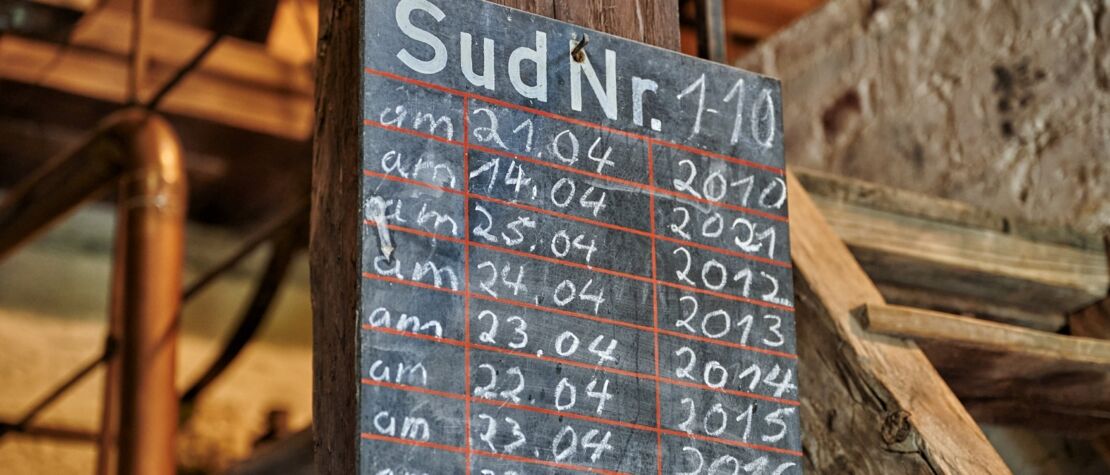 Sud Nr. 1-10
am 21.04 2010
am 14.04 2021
am 25.04 2012
am 24.04 2013
am 23.04 2014
am 22.04 2015
am 23.04 201